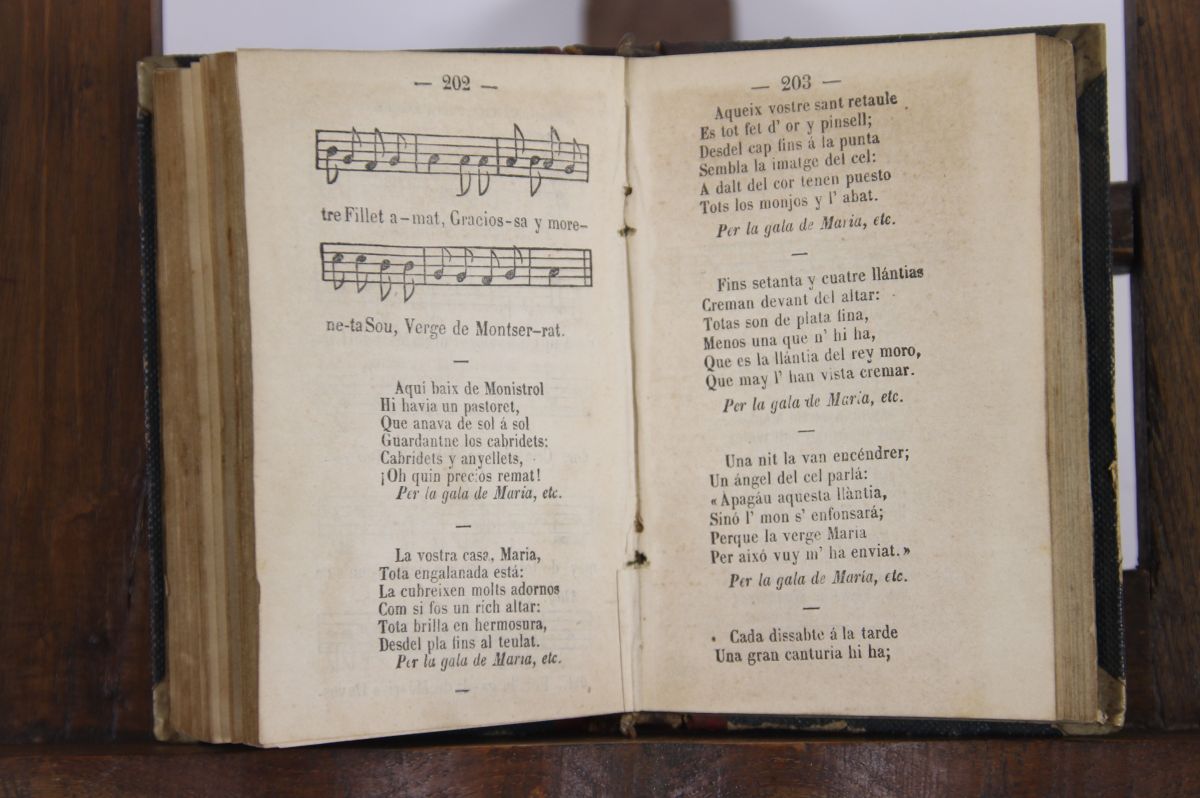 — 202 —
tre Fillet a-mat, Gracios-sa y more-
ne-ta Sou, Verge de Montser-rat.
Aqui baix de Monistrol
Hi havia un pastoret,
Que anava de sol á sol
Guardantne los cabridets:
Cabridets y anyellets,
¡Oh quin precios remat!
Per la gala de Maria, etc.
La vostra casa, Maria,
Tota engalanada está:
La cubreixen molts adornos
Com si fos un rich altar:
Tota brilla en hermosura,
Desdel pla fins al teulat.
Per la gala de Maria, etc.
— 203 —
Aqueix vostre sant retaule
Es tot fet d' or y pinsell;
Desdel cap fins á la punta
Sembla la imatge del cel:
A dalt del cor tenen puesto
Tots los monjos y l' abat.
Per la gala de Maria, etc.
Fins setanta y cuatre llántias
Creman devant del altar:
Totas son de plata fina,
Menos una que n' hi ha,
Que es la llántia del rey moro,
Que may l' han vista cremar.
Per la gala de Maria, etc.
Una nit la van encéndrer;
Un ángel del cel parlá:
« Apagáu aquesta llàntia,
Sinó l' mon s' enfonsará;
Perque la verge Maria
Per aixó vuy m' ha enviat. »
Per la gala de María, etc.
Cada dissabte á la tarde
Una gran canturia hi ha;